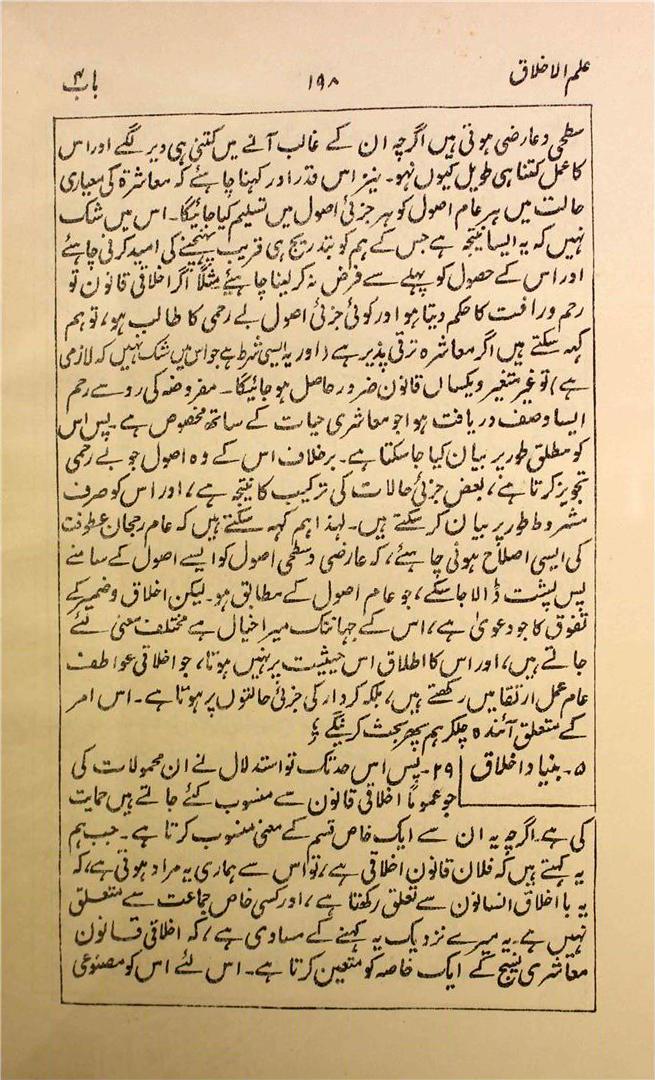 علم الاخلاق ۱۹۸ باب ۴
سطحی و عارضی ہوتی ہیں اگرچہ ان کے غالب آنے میں کتنی ہی دیر لگے اور اس
کا عمل کتنا ہی طویل کیوں نہو۔ نیز اس قدر اور کہنا چاہئے کہ معاشرۃ کی معیاری
حالت میں ہر عام اصول کو ہر جزئی اصول میں تسلیم کیا جائیگا۔ اس میں شک
نہیں کہ یہ ایسا نتیجہ ہے جس کے ہم کو بتدریج ہی قریب پہنچنے کی امید کرنی چاہئے
اور اس کے حصول کو پہلے سے فرض نہ کر لینا چاہئے مثلاً اگر اخلاقی قانون تو
رحم و رافت کا حکم دیتا ہو اور کوئی جزئی اصول بے رحمی کا طالب ہو، تو ہم
کہہ سکتے ہیں اگر معاشرہ ترقی پذیر ہے (اور یہ ایسی شرط ہے جو اس میں شک نہیں کہ لازمی
ہے) تو غیر متغیر و یکساں قانون ضرور حاصل ہو جائیگا۔ مفروضہ کی رو سے رحم
ایسا وصف دریافت ہوا جو معاشری حیات کے ساتھ مخصوص ہے۔ پس اس
کو مطلق طور پر بیان کیا جا سکتا ہے۔ برخلاف اس کے وہ اصول جو بے رحمی
تجویز کرتا ہے، بعض جزئی حالات کی ترکیب کا نتیجہ ہے، اور اس کو صرف
مشروط طور پر بیان کر سکتے ہیں۔ لہذا ہم کہہ سکتے ہیں کہ عام رجحان عطوفت
کی ایسی اصلاح ہوئی چاہئے، کہ عارضی و سطحی اصول کو ایسے اصول کے سامنے
پس پشت ڈالا جا سکے، جو عام اصول کے مطابق ہو۔ لیکن اخلاق و ضمیر کے
تفوق کا جو دعویٰ ہے، اس کے جہانتک میرا خیال ہے مختلف معنی لئے
جاتے ہیں، اور اس کا اطلاق اس حیثیت پر نہیں ہوتا، جو اخلاقی عواطف
عام عمل ارتقا میں رکھتے ہیں، بلکہ کردار کی جزئی حالتوں پر ہوتا ہے۔ اس امر
کے متعلق آئندہ چلکر ہم پھر بحث کرینگے ؛
۵۔ بنیاد اخلاق ۲۹۔ پس اس حد تک تو استدلال نے ان محمولات کی
جو عموماً اخلاقی قانون سے منسوب کئے جاتے ہیں حمایت
کی ہے۔ اگرچہ یہ ان سے ایک خاص قسم کے معنی منسوب کرتا ہے۔ جب ہم
یہ کہتے ہیں کہ فلاں قانون اخلاقی ہے، تو اس سے ہماری یہ مراد ہوتی ہے، کہ
یہ با اخلاق انسانوں سے تعلق رکھتا ہے، اور کسی خاص جماعت سے متعلق
نہیں ہے۔ یہ میرے نزدیک یہ کہنے کے مساوی ہے، کہ اخلاقی قانون
معاشری نسیج کے ایک خاصہ کو متعین کرتا ہے۔ اس لئے اس کو مصنوعی